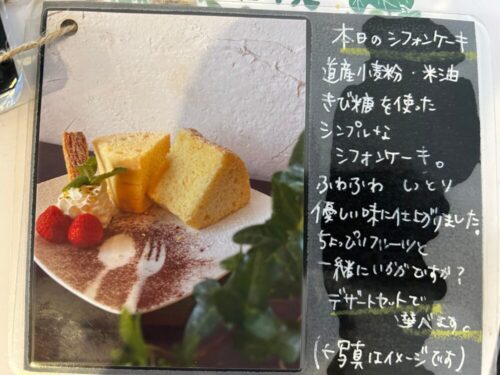 本日のシフォンケーキ
道産小麦粉・米油
きび糖を使った
シンプルな
シフォンケーキ。
ふわふわ しとり
優しい味に仕上りました。
ちょっぴりフルーツと
一緒にいかがですか?
デザートセットで
選べます。
(写真はイメージです)